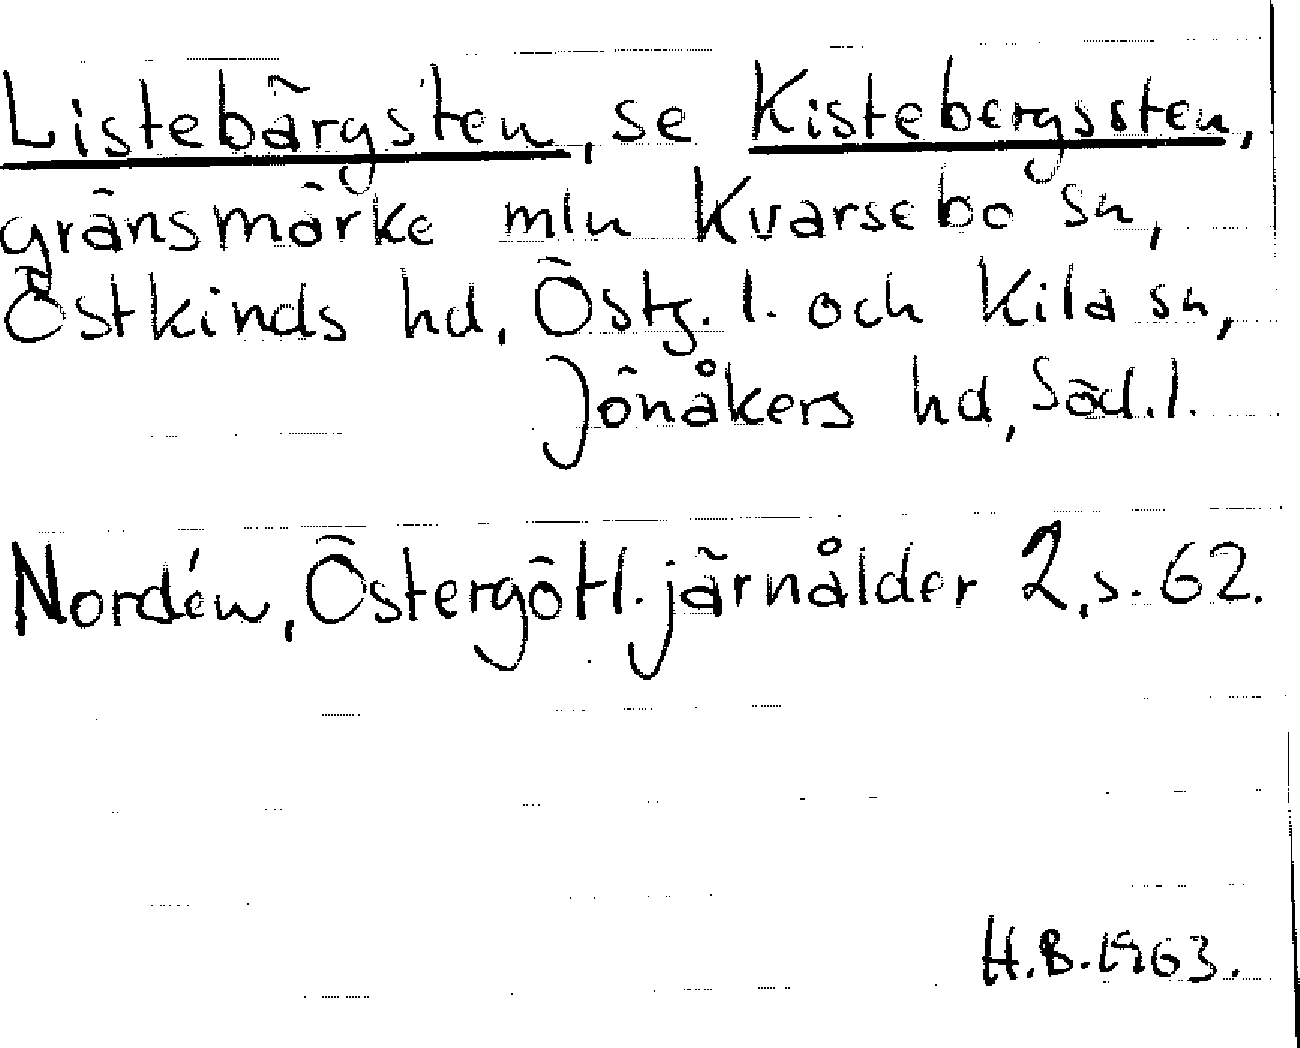 Listebärgsten, se Kistebergssten,
gränsmärke mln Kvarsebo sn,
Östkinds hd, Östg. l. och Kila sn,
Jönåkers hd, Söd. l.
Nordén, Östergötl. järnålder 2, s. 62.
H.B. 1963.